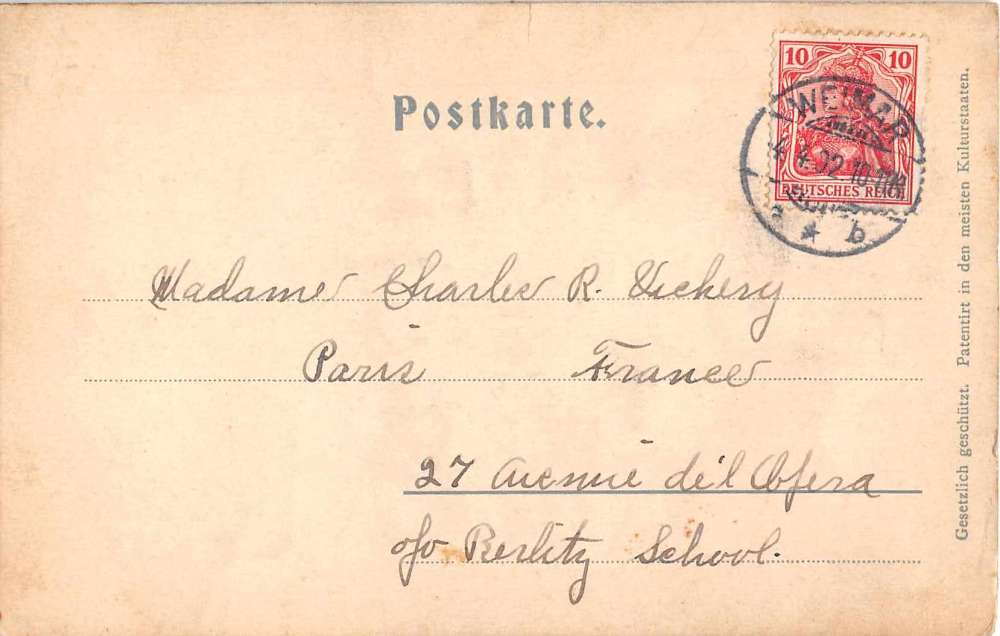 Postkarte.
10 10
DEUTSCHES REICH
WEIMAR
4.02.10-11V.
* b
Madame Charles R. Vickery
Paris France
27 Avenue de l'Opera
c/o Berlitz School.
Gesetzlich geschützt. Patentirt in den meisten Kulturstaaten.